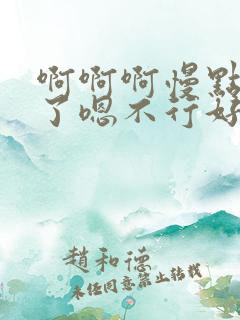 啊啊啊慢點
了嗯不行好
趙和德
未任同意禁止转载